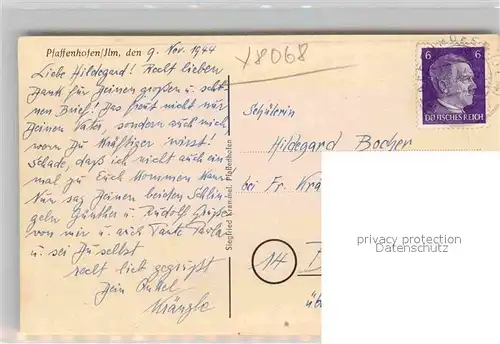 Pfaffenhofen/Ilm, den 9. Nov. 1944
Liebe Hildegard! Recht lieben
Dank für Deinen großen u. schö-
nen Brief! Das freut nicht nur
Deinen Vater, sondern auch mich
wenn Du kräftiger wirst!
Schade, daß ich nicht auch ein-
mal zu Euch kommen kann.
Nun sag Deinen beiden Schlin-
geln Günther u. Rudolf Grüße
von mir u. auch Tante Paula
u. sei Du selbst
recht lieb gegrüßt
Dein Onkel
Kränzle
Siegfried Kranebel, Pfaffenhofen
Y8068
6
DEUTSCHES REICH
Schülerin
Hildegard Bocher
bei Fr. Krä
14
üb
privacy protection
Datenschutz